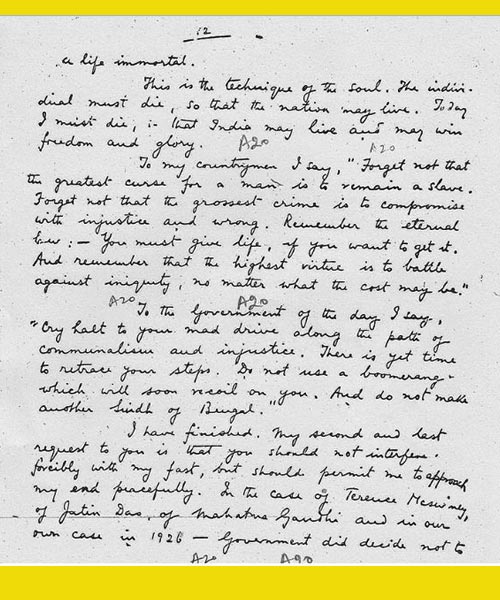 12
a life immortal.
This is the technique of the soul. The indivi-
dual must die, so that the nation may live. Today
I must die, so that India may live and may win
freedom and glory. A20 A20
To my countrymen I say, "Forget not that
the greatest curse for a man is to remain a slave.
Forget not that the grossest crime is to compromise
with injustice and wrong. Remember the eternal
law:— You must give life, if you want to get it.
And remember that the highest virtue is to battle
against iniquity, no matter what the cost may be."
A20 A20
To the Government of the day I say,
"Cry halt to your mad drive along the path of
communalism and injustice. There is yet time
to retrace your steps. Do not use a boomerang
which will soon recoil on you. And do not make
another Sindh of Bengal."
I have finished. My second and last
request to you is that you should not interfere
forcibly with my fast, but should permit me to approach
my end peacefully. In the case of Terence Mcswiney,
of Jatin Das, of Mahatma Gandhi and in our
own case in 1926 — Government did decide not to
A20 A20